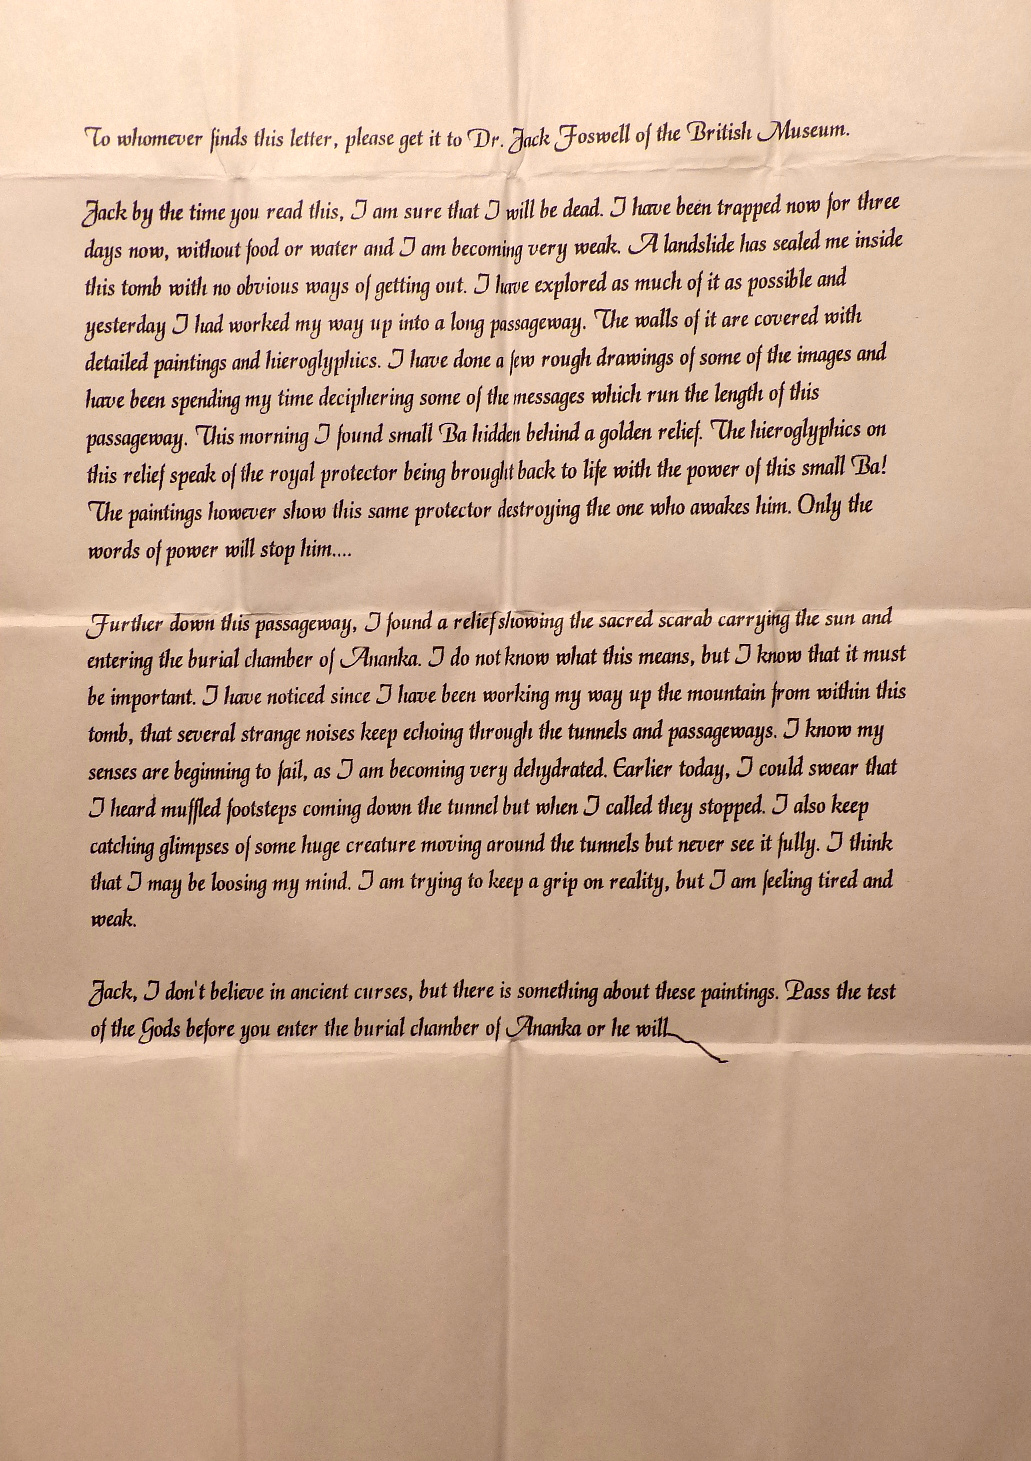 To whomever finds this letter, please get it to Dr. Jack Foswell of the British Museum.
Jack by the time you read this, I am sure that I will be dead. I have been trapped now for three
days now, without food or water and I am becoming very weak. A landslide has sealed me inside
this tomb with no obvious ways of getting out. I have explored as much of it as possible and
yesterday I had worked my way up into a long passageway. The walls of it are covered with
detailed paintings and hieroglyphics. I have done a few rough drawings of some of the images and
have been spending my time deciphering some of the messages which run the length of this
passageway. This morning I found small Ba hidden behind a golden relief. The hieroglyphics on
this relief speak of the royal protector being brought back to life with the power of this small Ba!
The paintings however show this same protector destroying the one who awakes him. Only the
words of power will stop him....
Further down this passageway, I found a relief showing the sacred scarab carrying the sun and
entering the burial chamber of Ananka. I do not know what this means, but I know that it must
be important. I have noticed since I have been working my way up the mountain from within this
tomb, that several strange noises keep echoing through the tunnels and passageways. I know my
senses are beginning to fail, as I am becoming very dehydrated. Earlier today, I could swear that
I heard muffled footsteps coming down the tunnel but when I called they stopped. I also keep
catching glimpses of some huge creature moving around the tunnels but never see it fully. I think
that I may be loosing my mind. I am trying to keep a grip on reality, but I am feeling tired and
weak.
Jack, I don't believe in ancient curses, but there is something about these paintings. Pass the test
of the Gods before you enter the burial chamber of Ananka or he will